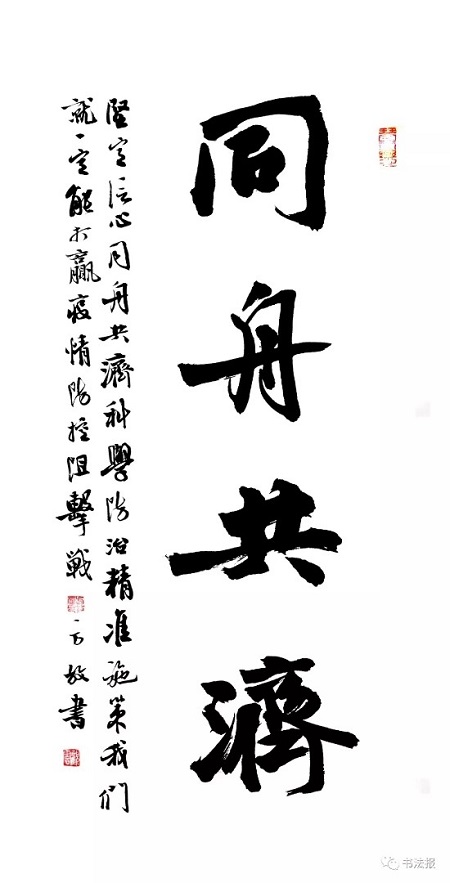 同舟共濟
堅定信心同舟共濟科學防治精准施策我們
就一定能打贏疫情防控阻擊戰
一方敬書
书法报